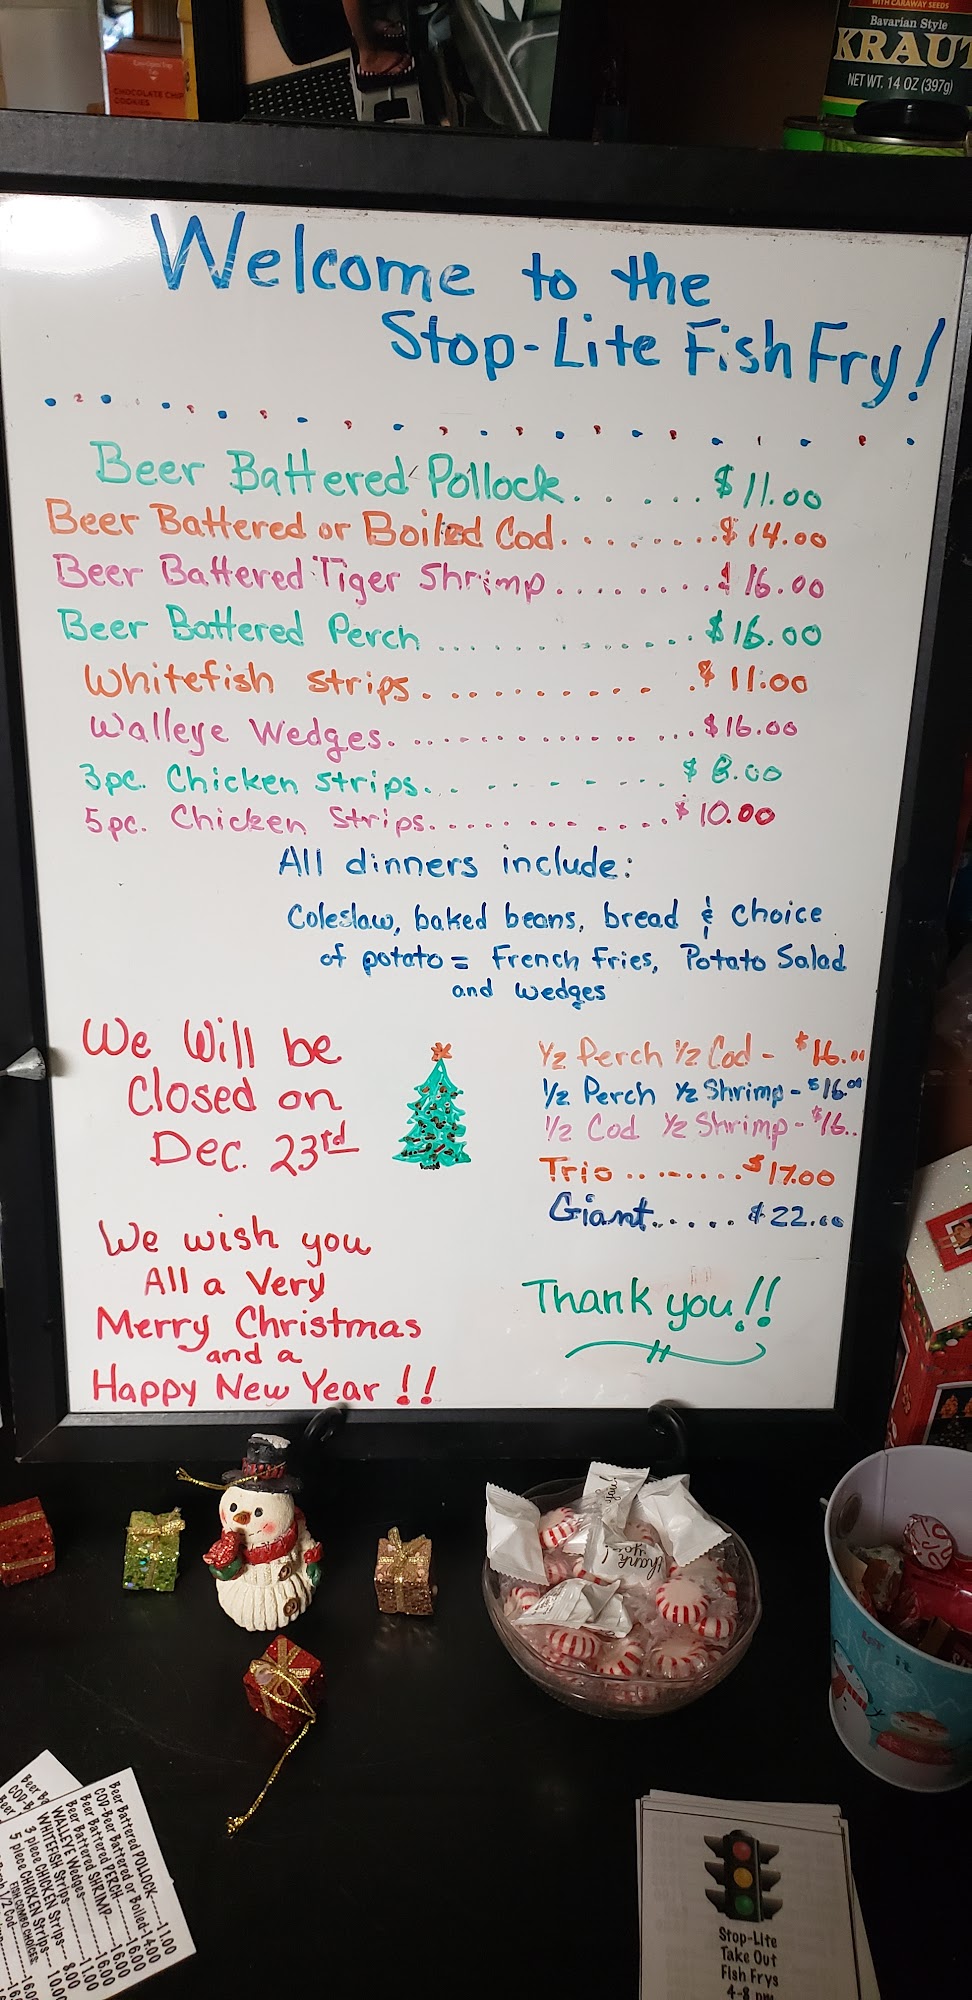 WITH CARAWAY SEEDS
Bavarian Style
KRAUT
NET WT. 14 OZ (397g)
CHOCOLATE CHIP
COOKIES
Welcome to the
Stop-Lite Fish Fry!
Beer Battered Pollock...... $11.00
Beer Battered or Boiled Cod........$14.00
Beer Battered Tiger Shrimp.........$16.00
Beer Battered Perch .............$16.00
Whitefish strips........... $11.00
Walleye Wedges.................$16.00
3pc. Chicken strips....... $8.00
5pc. Chicken Strips.............$10.00
All dinners include:
Coleslaw, baked beans, bread & choice
of potato = French Fries, Potato Salad
and wedges
We Will be
Closed on
Dec. 23rd
We wish you
All a Very
Merry Christmas
and a
Happy New Year !!
1/2 Perch 1/2 Cod - $16.00
1/2 Perch 1/2 Shrimp - $16.00
1/2 Cod 1/2 Shrimp - $16..
Trio ........$17.00
Giant..... $22.00
Thank you!!
thank
you!
Beer Battered POLLOCK-----11.00
COD-Beer Battered or Boiled-14.00
Beer Battered PERCH-----16.00
Beer Battered SHRIMP----16.00
WALLEYE Wedges-----16.00
WHITEFISH Strips-----11.00
3 piece CHICKEN Strips-- 8.00
5 piece CHICKEN Strips-- 10.00
FISH COMBO CHOICES:
Stop-Lite
Take Out
Fish Frys
4-8 pm